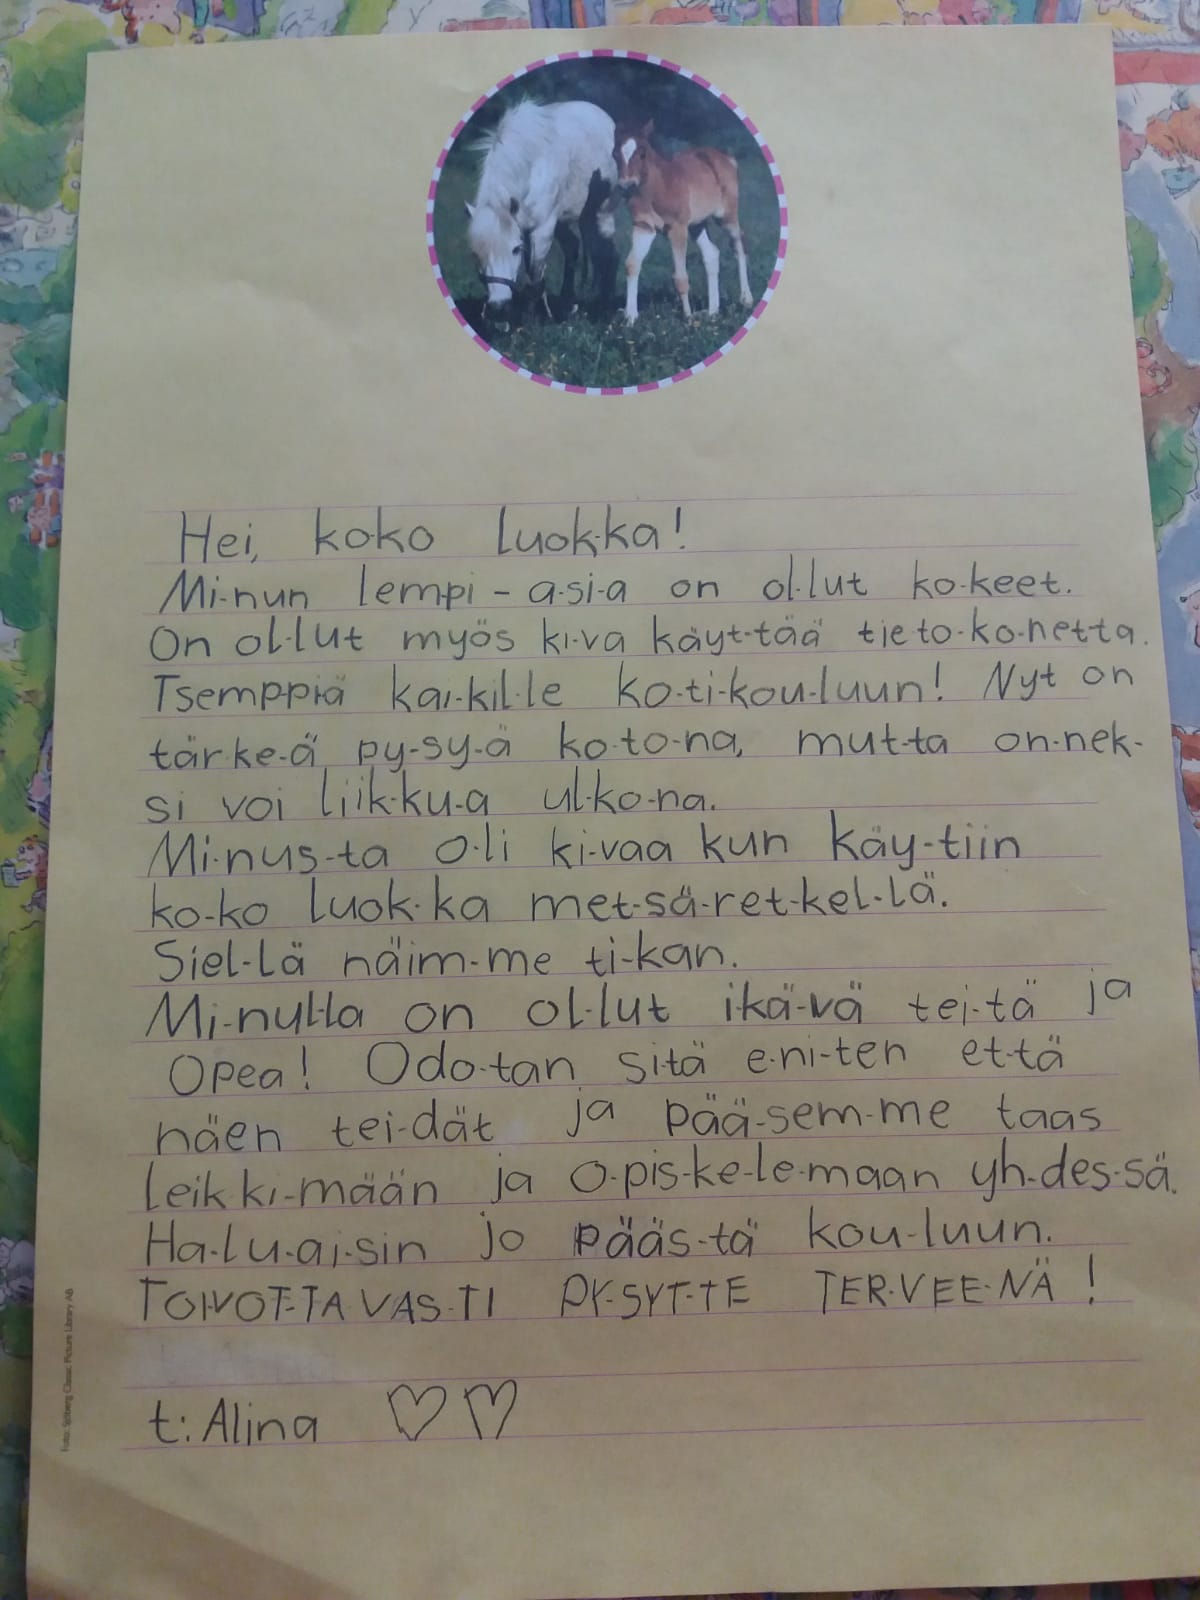 Hei, ko-ko luok-ka!
Mi-nun lempi-a-si-a on ol-lut ko-keet.
On ol-lut myös ki-va käyt-tää tieto-ko-netta.
Tsemppiä kai-kil-le ko-ti-kou-luun! Nyt on
tär-ke-ä py-sy-ä ko-to-na, mut-ta on-nek-
si voi liik-ku-a ul-ko-na.
Mi-nus-ta o-li ki-vaa kun käy-tiin
ko-ko luok-ka met-sä-ret-kel-lä.
Siel-lä näim-me ti-kan.
Mi-nul-la on ol-lut ikä-vä tei-tä ja
Opea! Odo-tan si-tä e-ni-ten et-tä
näen tei-dät ja pää-sem-me taas
leik-ki-mään ja o-pis-ke-le-maan yh-des-sä.
Ha-lu-ai-sin jo pääs-tä kou-luun.
TOI-VOT-TA VAS-TI PY-SYT-TE TER-VEE-NÄ!
t: Alina ♡♡
Foto: Sjöberg Classic Picture Library AB